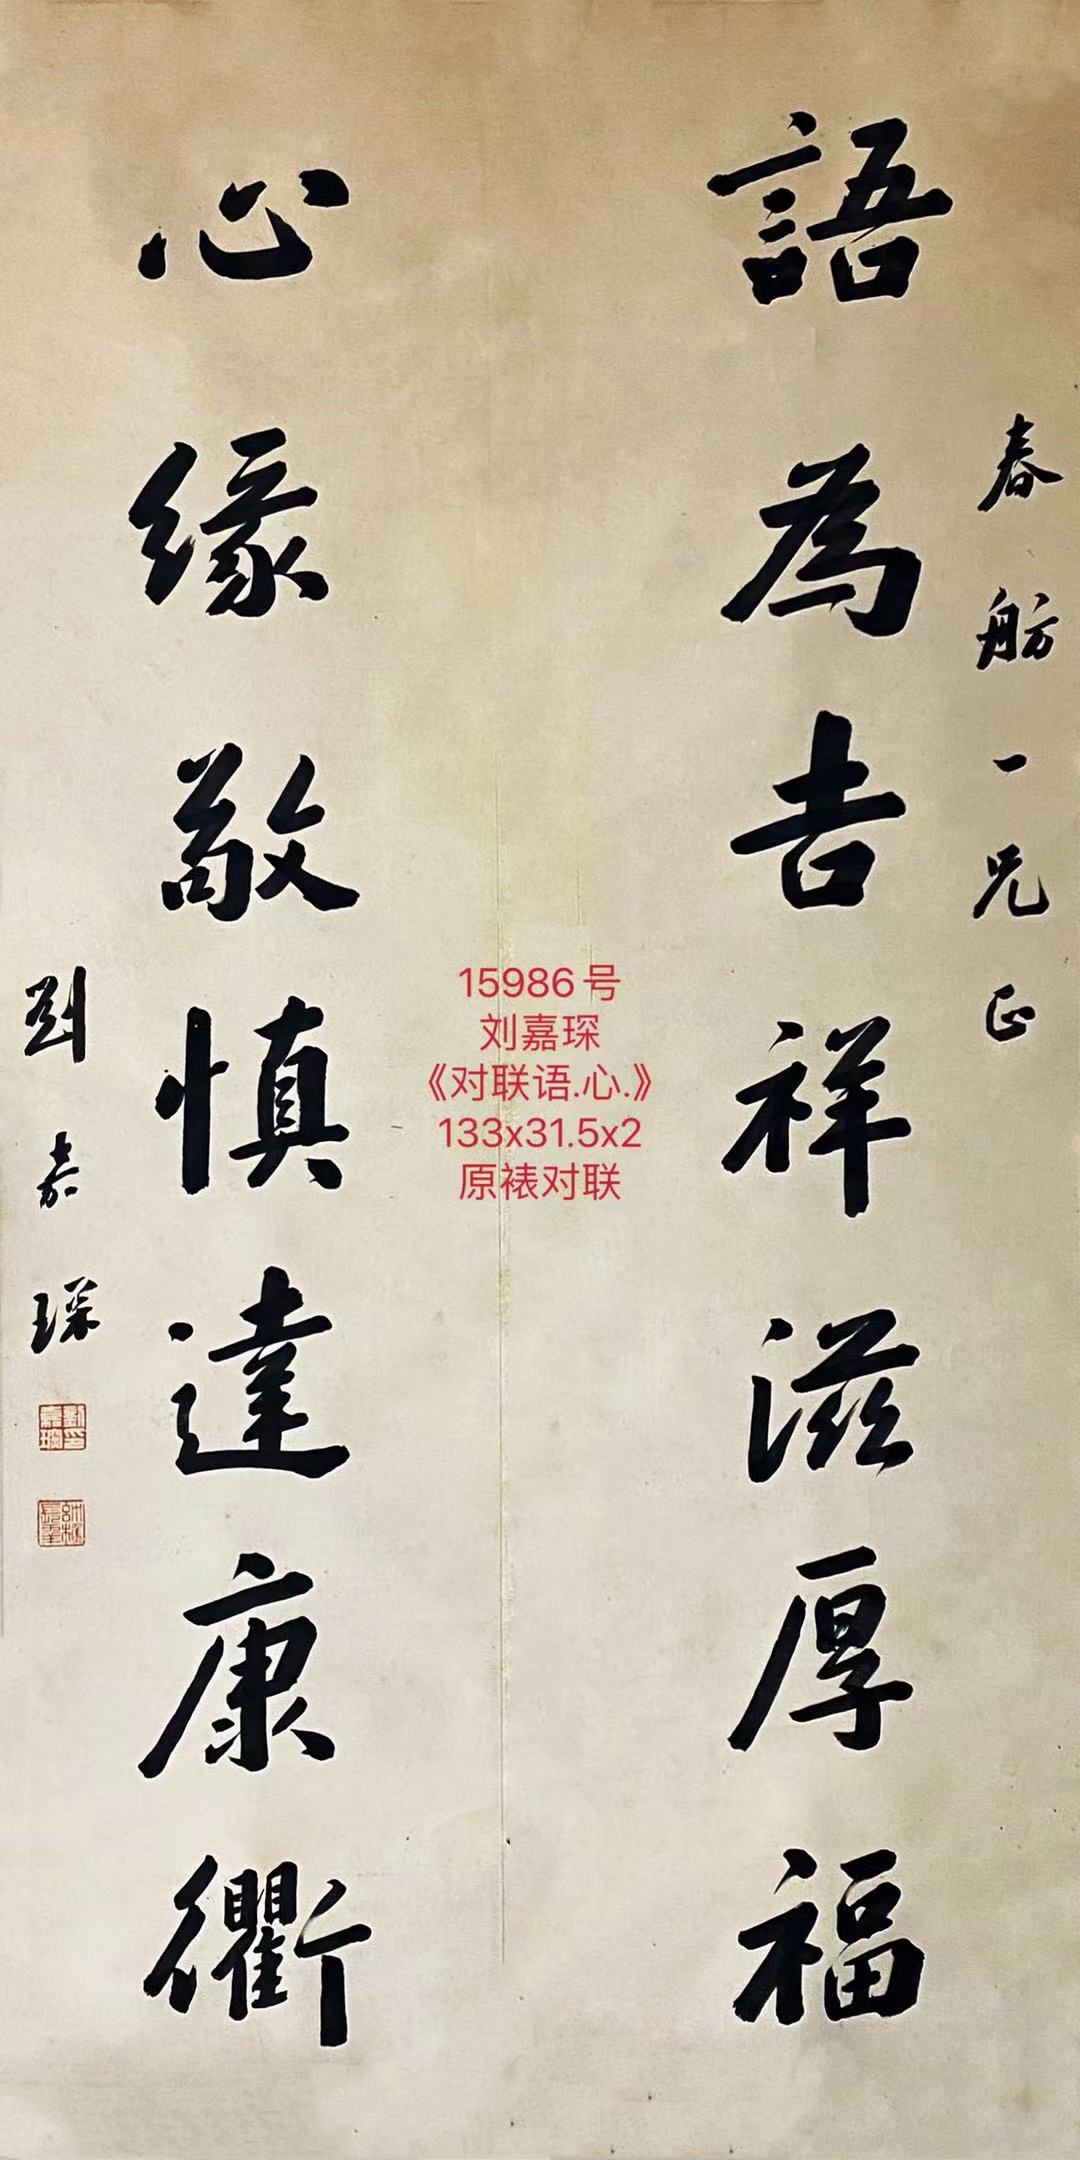 春舫一兄正
語為吉祥滋厚福
心緣敬慎達康衢
劉嘉琛
15986号
刘嘉琛
《对联语.心.》
133x31.5x2
原裱对联